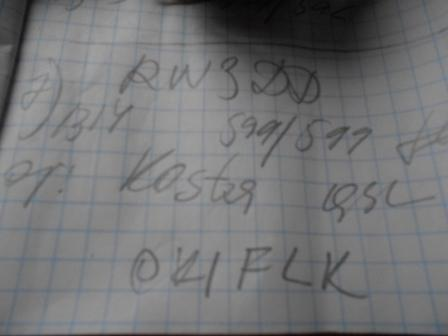 RW3DD
7) 1314 599/599
op: Kostya QSL
OK1FLK